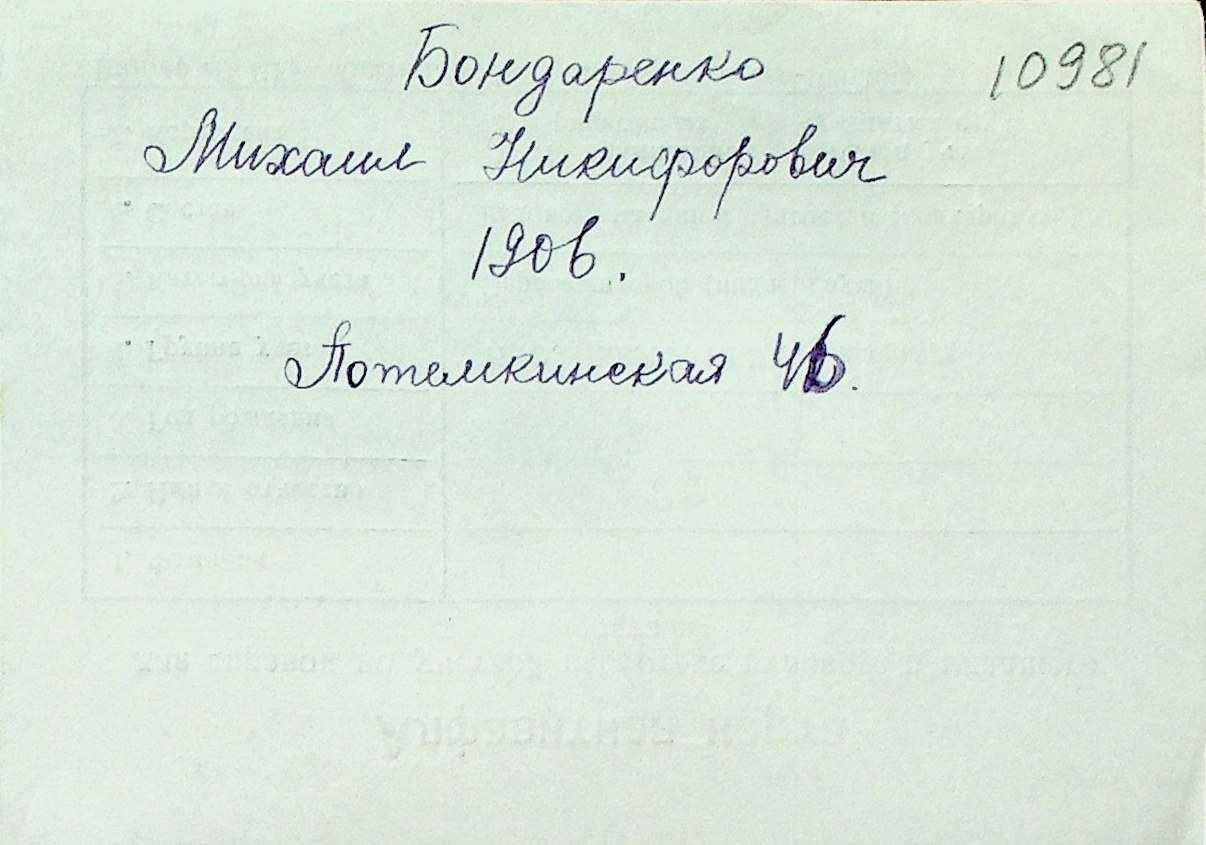 Бондаренко 10981
Михаил Никифорович
1906.
Потемкинская 46.